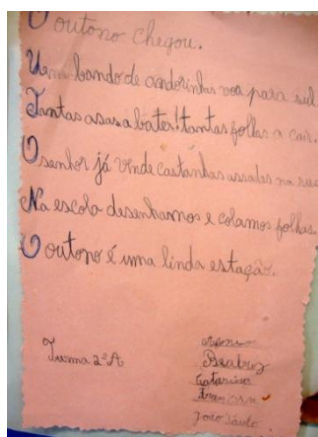 O outono chegou.
Um bando de andorinhas voa para sul
Tantas asas a bater! tantas folhas a cair.
O senhor já vende castanhas assadas na rua
Na escola desenhamos e colamos folhas.
O outono é uma linda estação.
Turma 2ºA
Beatriz
Catarina
João Paulo